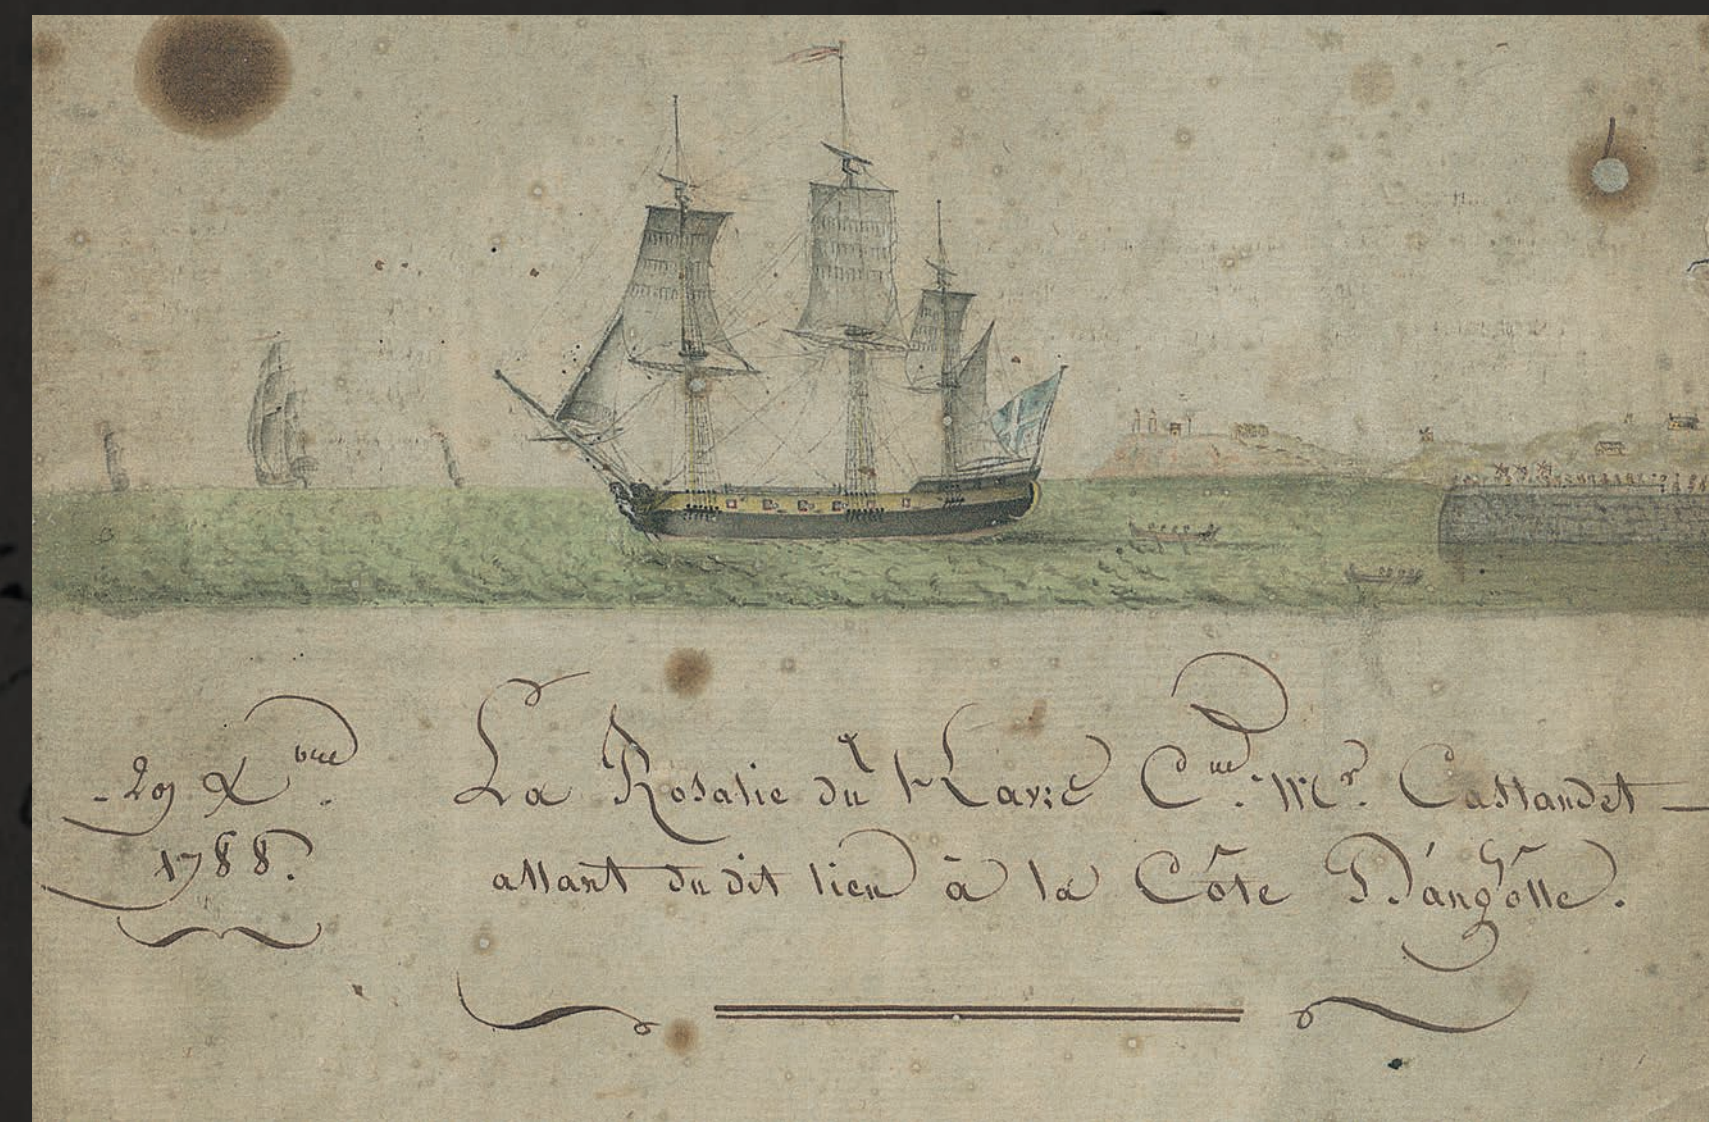 - 29 Xbre.
1788.
La Rosalie du havre Cne. Mr. Castandet —
allant du dit lieu à la Côte D'angolle.